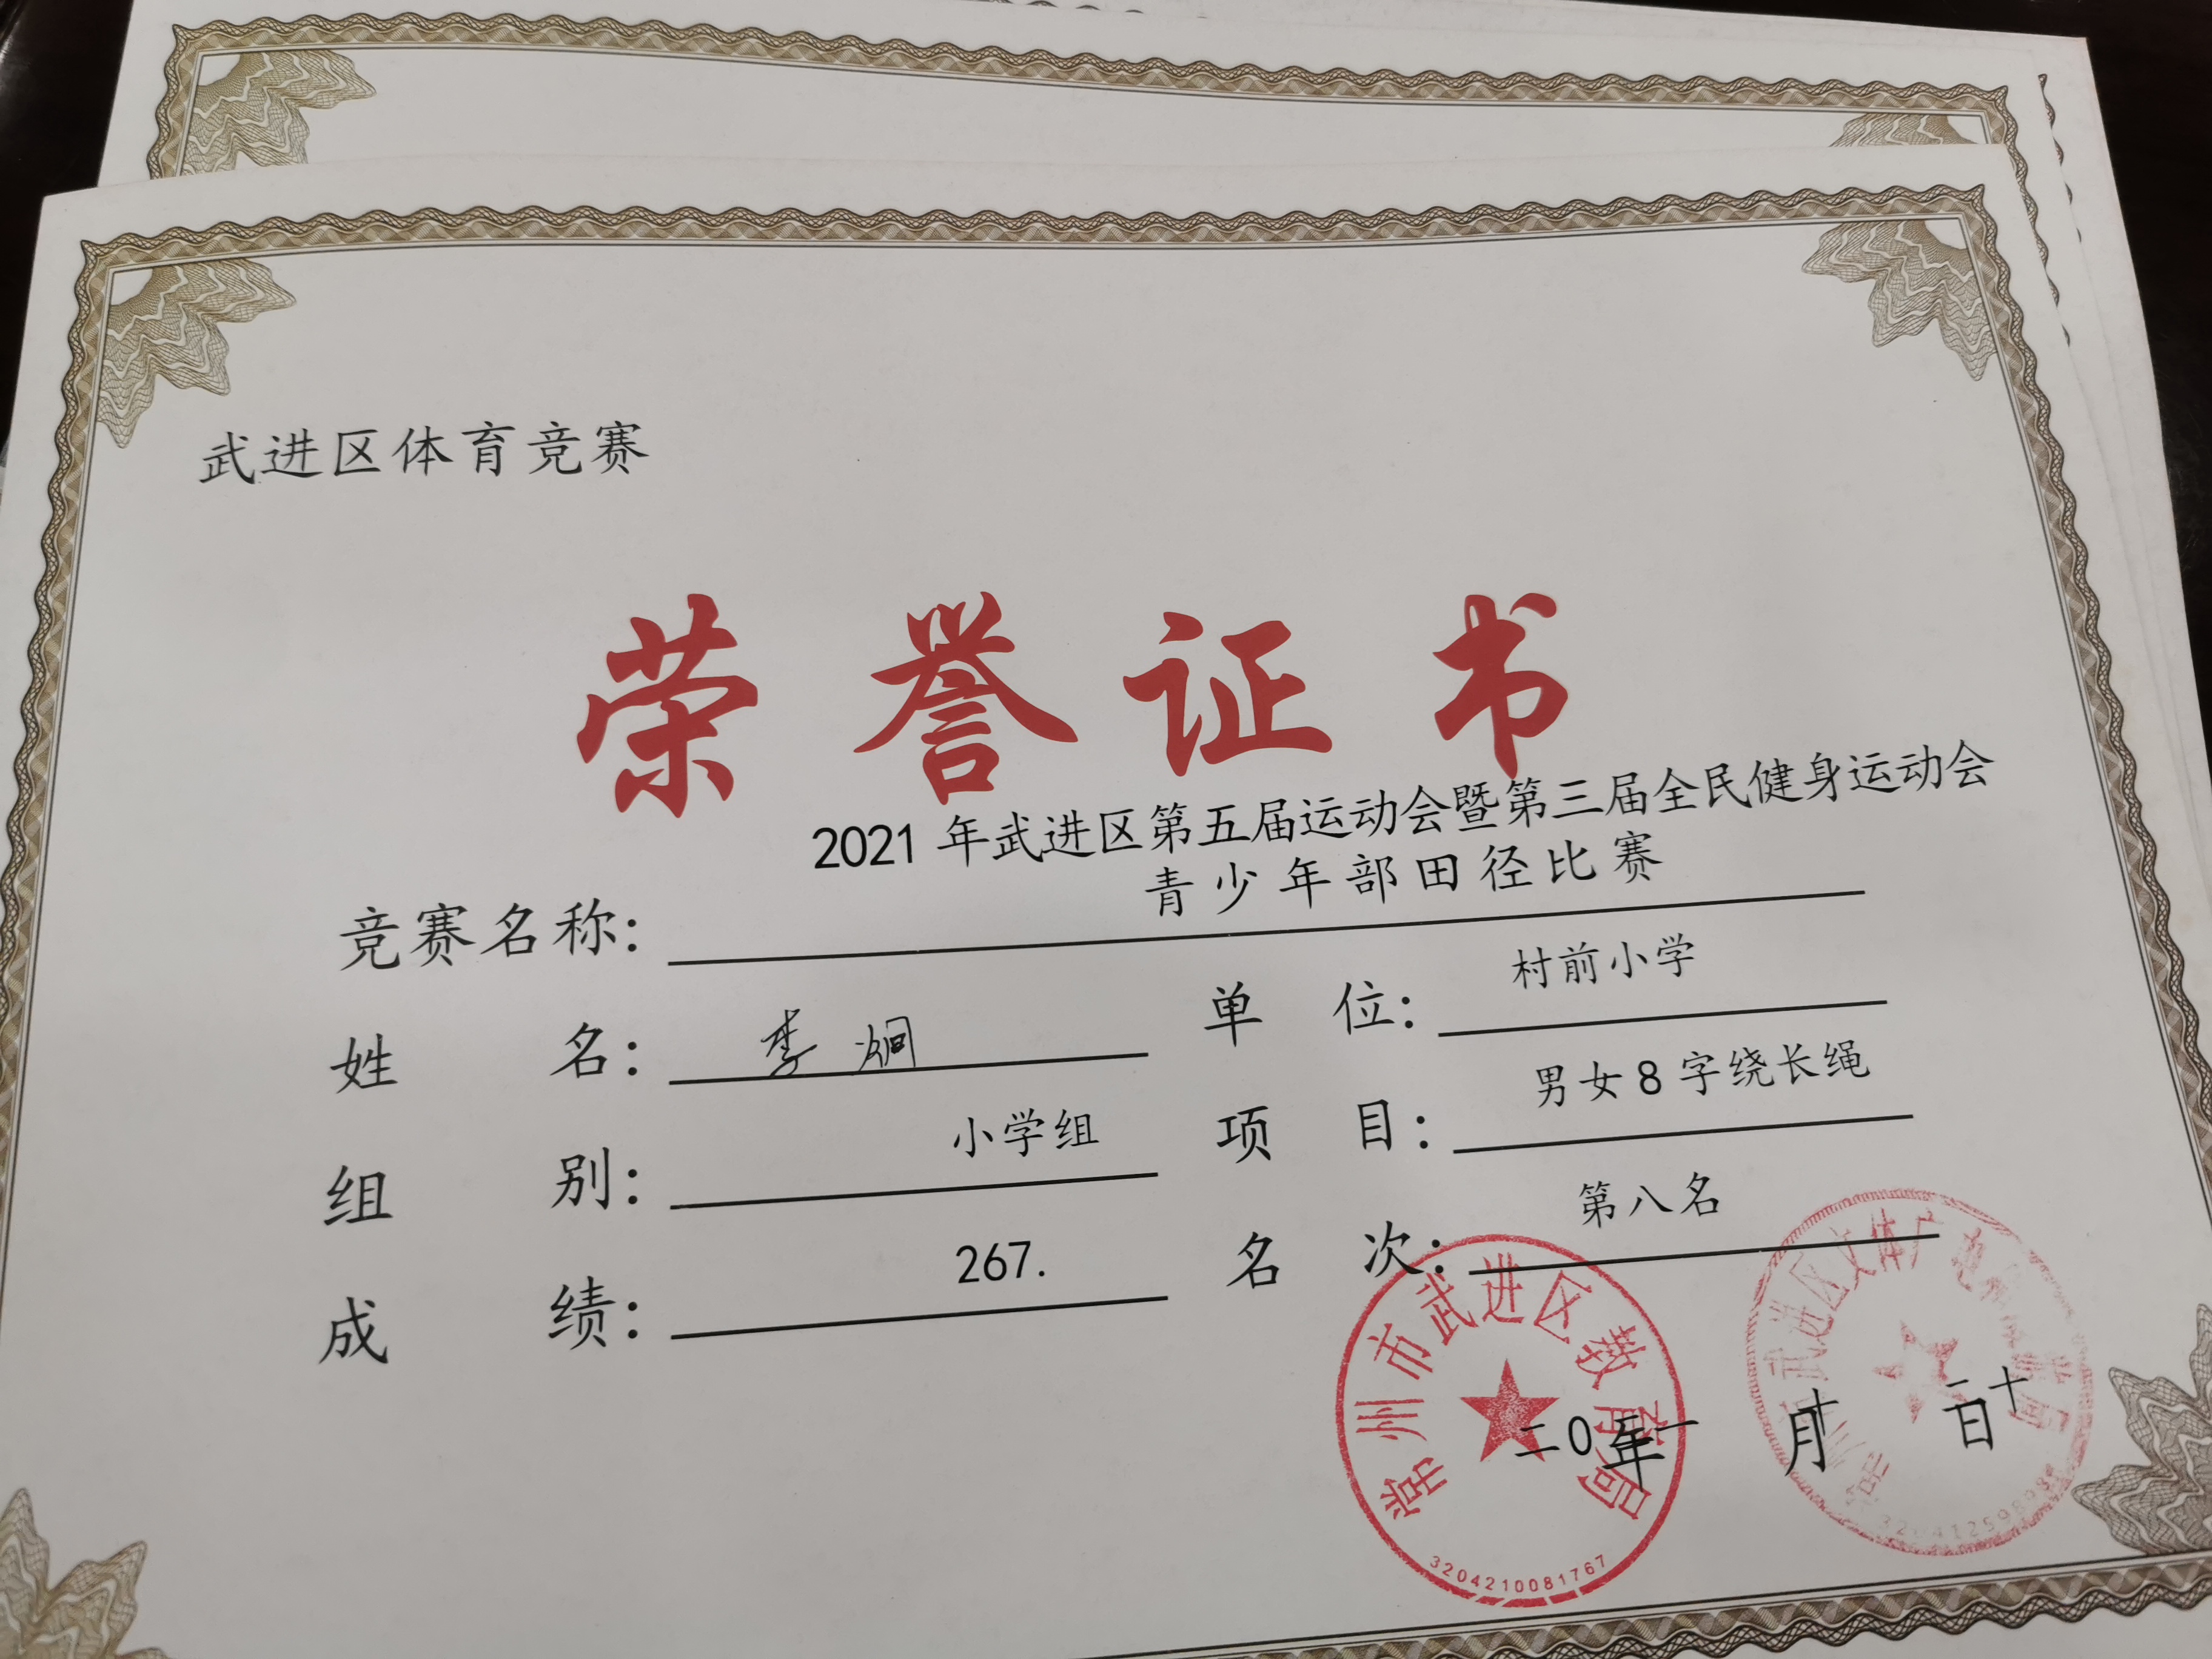 武进区体育竞赛
荣誉证书
2021年武进区第五届运动会暨第三届全民健身运动会
青少年部田径比赛
竞赛名称:
姓 名: 李炯 单 位: 村前小学
组 别: 小学组 项 目: 男女8字绕长绳
成 绩: 267. 名 次: 第八名
常州市武进区教育局
3204210081767
武进区文体广电和
二〇二一年 十月 二十日